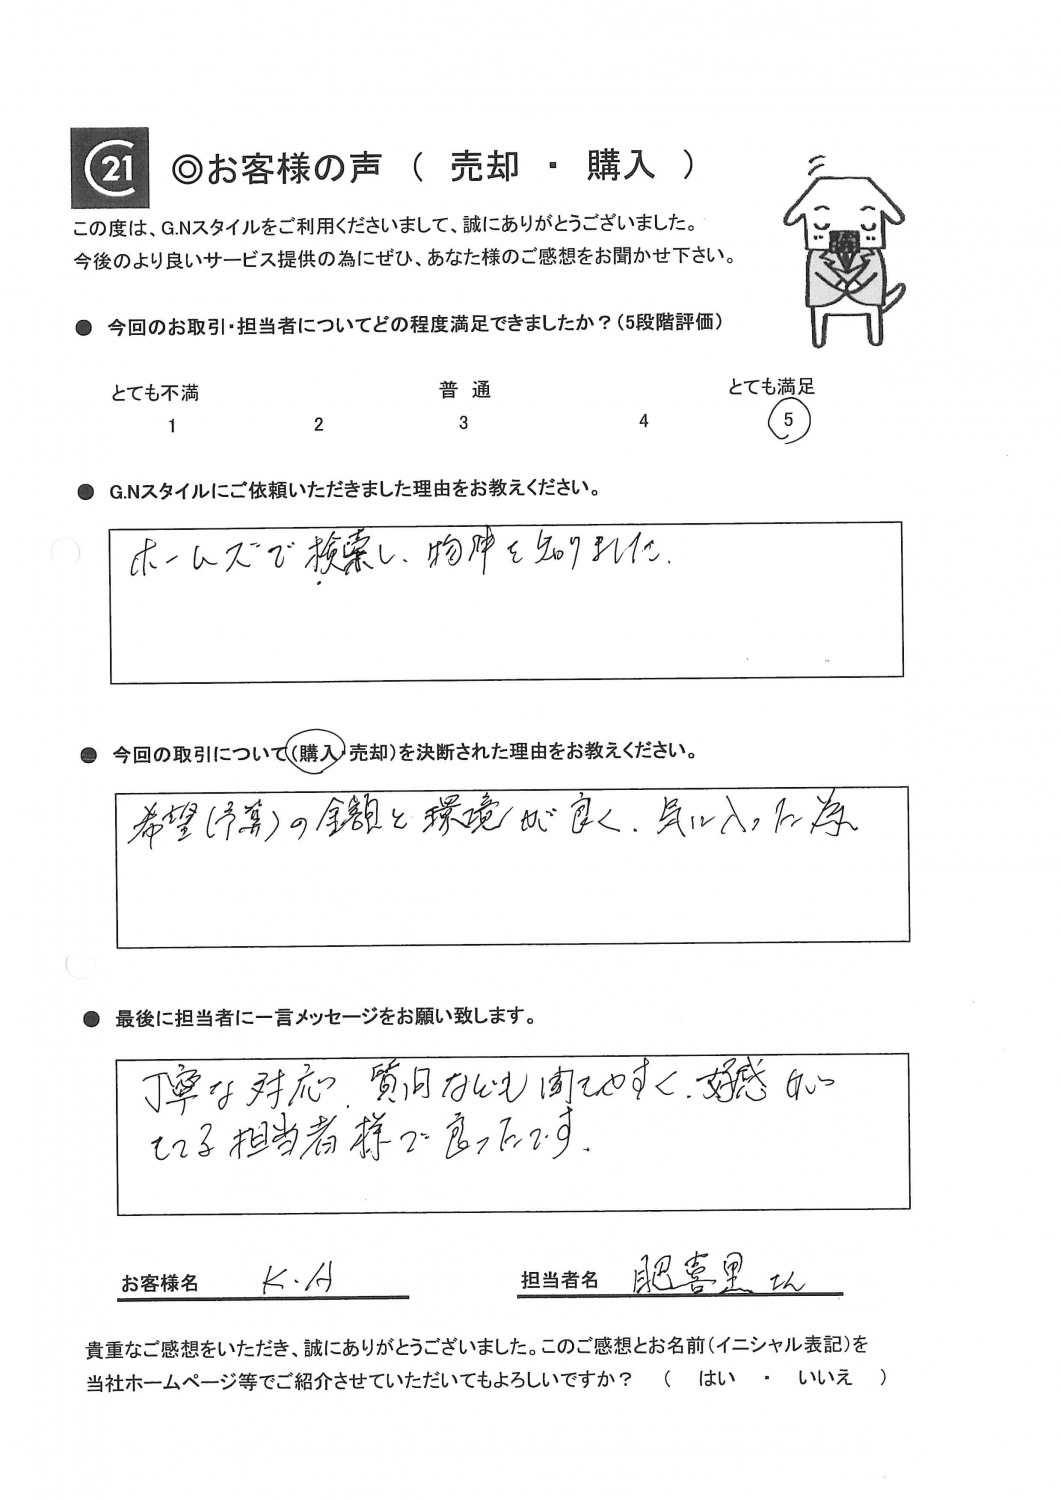 C21 ◎お客様の声 （ 売却 ・ 購入 ）
この度は、G.Nスタイルをご利用くださいまして、誠にありがとうございました。
今後のより良いサービス提供の為にぜひ、あなた様のご感想をお聞かせ下さい。
● 今回のお取引・担当者についてどの程度満足できましたか？（5段階評価）
とても不満 普 通 とても満足
1 2 3 4 5
● G.Nスタイルにご依頼いただきました理由をお教えください。
ホームズで検索し、物件を知りました.
● 今回の取引について（購入・売却）を決断された理由をお教えください。
希望(予算)の金額と環境が良く、気に入った為
● 最後に担当者に一言メッセージをお願い致します。
丁寧な対応、質問なども聞きやすく、好感が
もてる担当者様で良ったです.
お客様名 K.H 担当者名 肥喜里さん
貴重なご感想をいただき、誠にありがとうございました。このご感想とお名前（イニシャル表記）を
当社ホームページ等でご紹介させていただいてもよろしいですか？ （ はい ・ いいえ ）